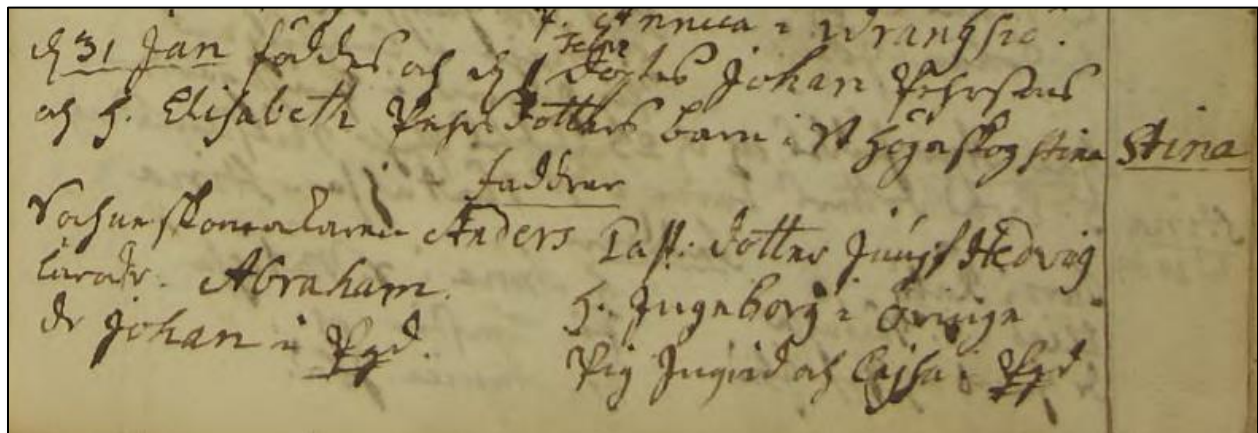 h. Annica i Wrangsiö.
d 31 Jan föddes och d 1 Febr döptes Johan Pehrsons
och h. Elisabeth Pehrs Dotters barn i St Högaskog Stina
Stina
Faddrar
Sochneskomakaren Anders
Abraham.
dr Johan i Pgd.
Past. Dotter Jungf Hedvig
h. Ingeborg i Öninge
Pig Ingrid och Cajsa i Pgd